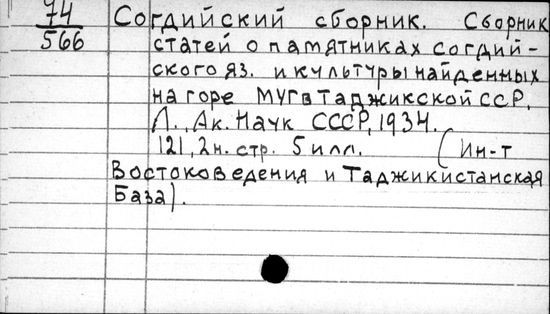 74
566
Согдийский сборник. Сборник
статей о памятниках согдий-
ского яз. и культуры найденных
на горе Муг в Таджикской ССР.
Л., Ак. Наук СССР, 1934.
121, 2 н. стр. 5 илл. (Ин-т
Востоковедения и Таджикистанская
База).